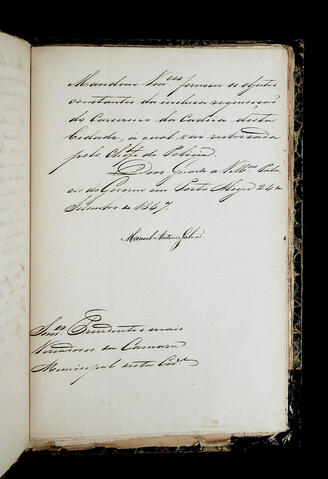 Mandem Vm.ces fornecer os objectos
constantes da inclusa requisição
do Carcereiro da Cadeia desta
Cidade, a qual vai rubricada
pelo Chefe de Policia.
Deos Guarde a V.M.ces Pala
cio do Governo em Porto Alegre 24 de
Setembro de 1847.
Manoel Antonio Galvão
Snr.es Presidente e mais
Vereadores da Camara
Municipal desta Cid.e